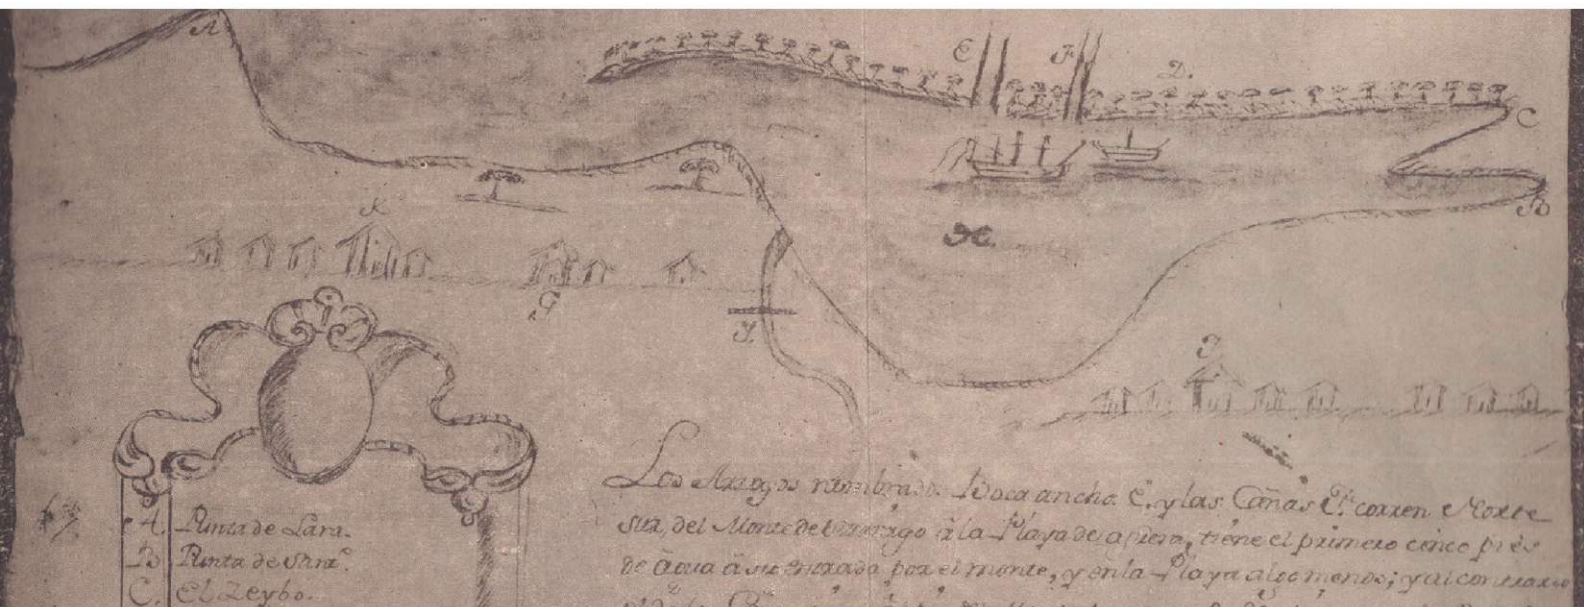 A
E
F
D.
C
B
K
H.
G
Y.
J
A. Punta de Lara.
B Punta de Sant.º
C. El Zeybo.
Los Arroyos nombrado Boca ancha E. y las Cañas F. corren Norte
Sur, del Monte del à la Playa de a tiene el primero cinco pies
de agua à su entrada por el monte, y en la Playa algo menos; y al contrario